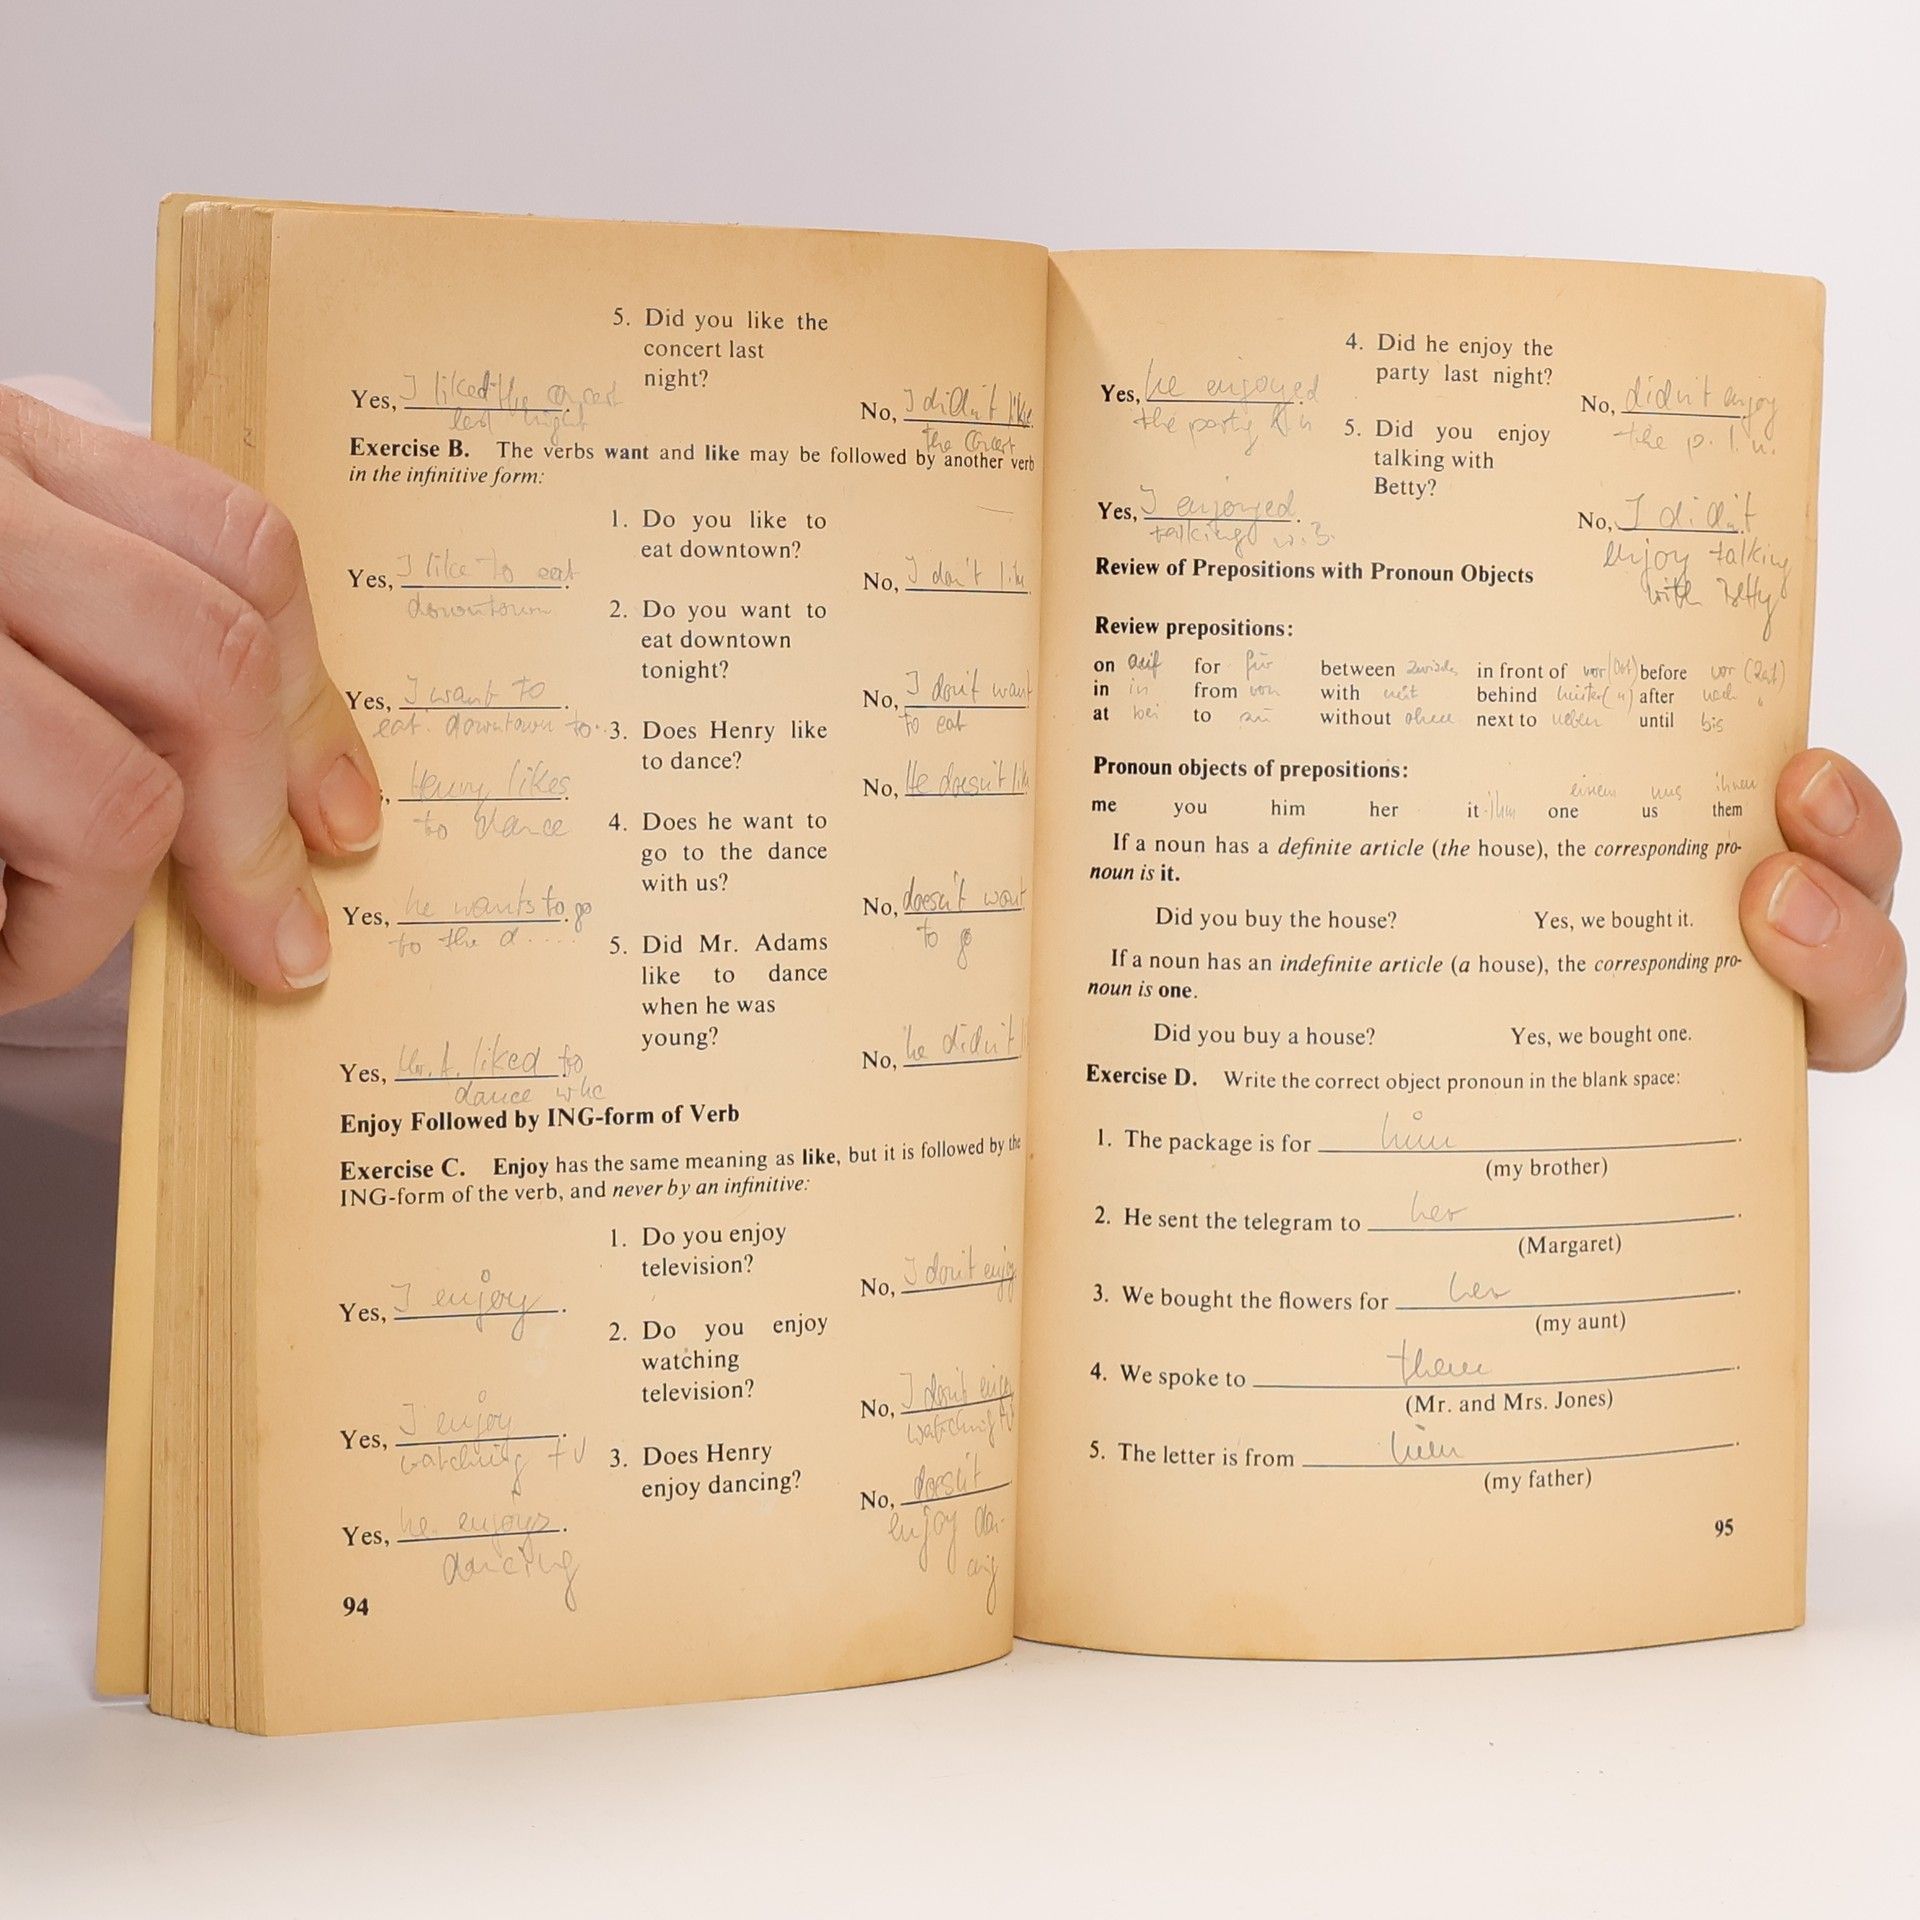 5. Did you like the
concert last
night?
Yes, I liked the concert No, I didn't like
last night the concert
Exercise B. The verbs want and like may be followed by another verb
in the infinitive form:
1. Do you like to
eat downtown?
Yes, I like to eat No, I don't like
downtown
2. Do you want to
eat downtown
tonight?
Yes, I want to No, I don't want
eat downtown to to eat
3. Does Henry like
to dance?
Henry likes No, He doesn't
to dance
4. Does he want to
go to the dance
with us?
Yes, he wants to go No, doesn't want
to the d.... to go
5. Did Mr. Adams
like to dance
when he was
young?
Yes, Mr. A. liked to No, he didn't
dance
Enjoy Followed by ING-form of Verb
Exercise C. Enjoy has the same meaning as like, but it is followed by the
ING-form of the verb, and never by an infinitive:
1. Do you enjoy
television?
Yes, I enjoy. No, I don't enjoy
2. Do you enjoy
watching
television?
Yes, I enjoy. No, I don't enjoy
watching TV watching TV
3. Does Henry
enjoy dancing?
Yes, he enjoys. No, doesn't
dancing enjoy
94
4. Did he enjoy the
party last night?
Yes, he enjoyed. No, didn't enjoy
the party the p. l. n.
5. Did you enjoy
talking with
Betty?
Yes, I enjoyed. No, I didn't
talking w. B. enjoy talking
with Betty
Review of Prepositions with Pronoun Objects
Review prepositions:
on auf for für between in front of vor (Ort) before vor (Zeit)
in in from von with mit behind hinter after nach
at bei to zu without ohne next to neben until bis
Pronoun objects of prepositions:
einem uns ihnen
me you him her it ihm one us them
If a noun has a definite article (the house), the corresponding pro-
noun is it.
Did you buy the house? Yes, we bought it.
If a noun has an indefinite article (a house), the corresponding pro-
noun is one.
Did you buy a house? Yes, we bought one.
Exercise D. Write the correct object pronoun in the blank space:
1. The package is for him.
(my brother)
2. He sent the telegram to her.
(Margaret)
3. We bought the flowers for her.
(my aunt)
4. We spoke to them.
(Mr. and Mrs. Jones)
5. The letter is from him.
(my father)
95